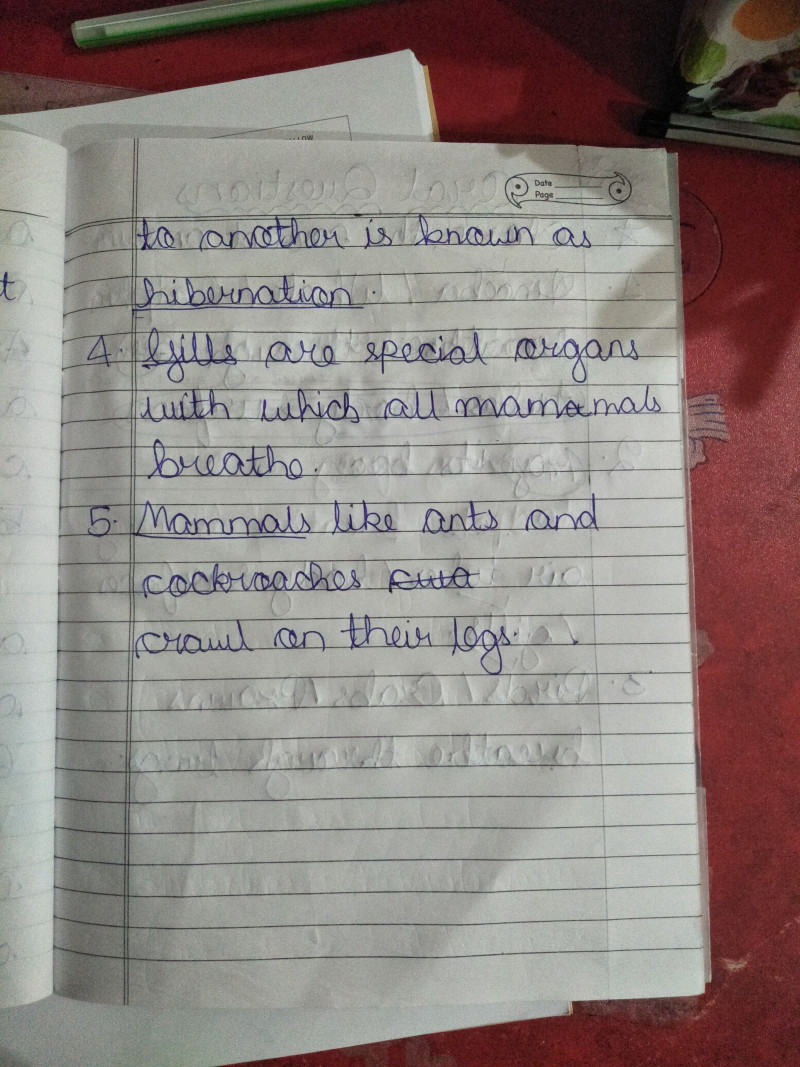 Date
Page
to another is known as
hibernation.
4. Gills are special organs
with which all mamamals
breathe.
5. Mammals like ants and
cockroaches
crawl on their legs.
t